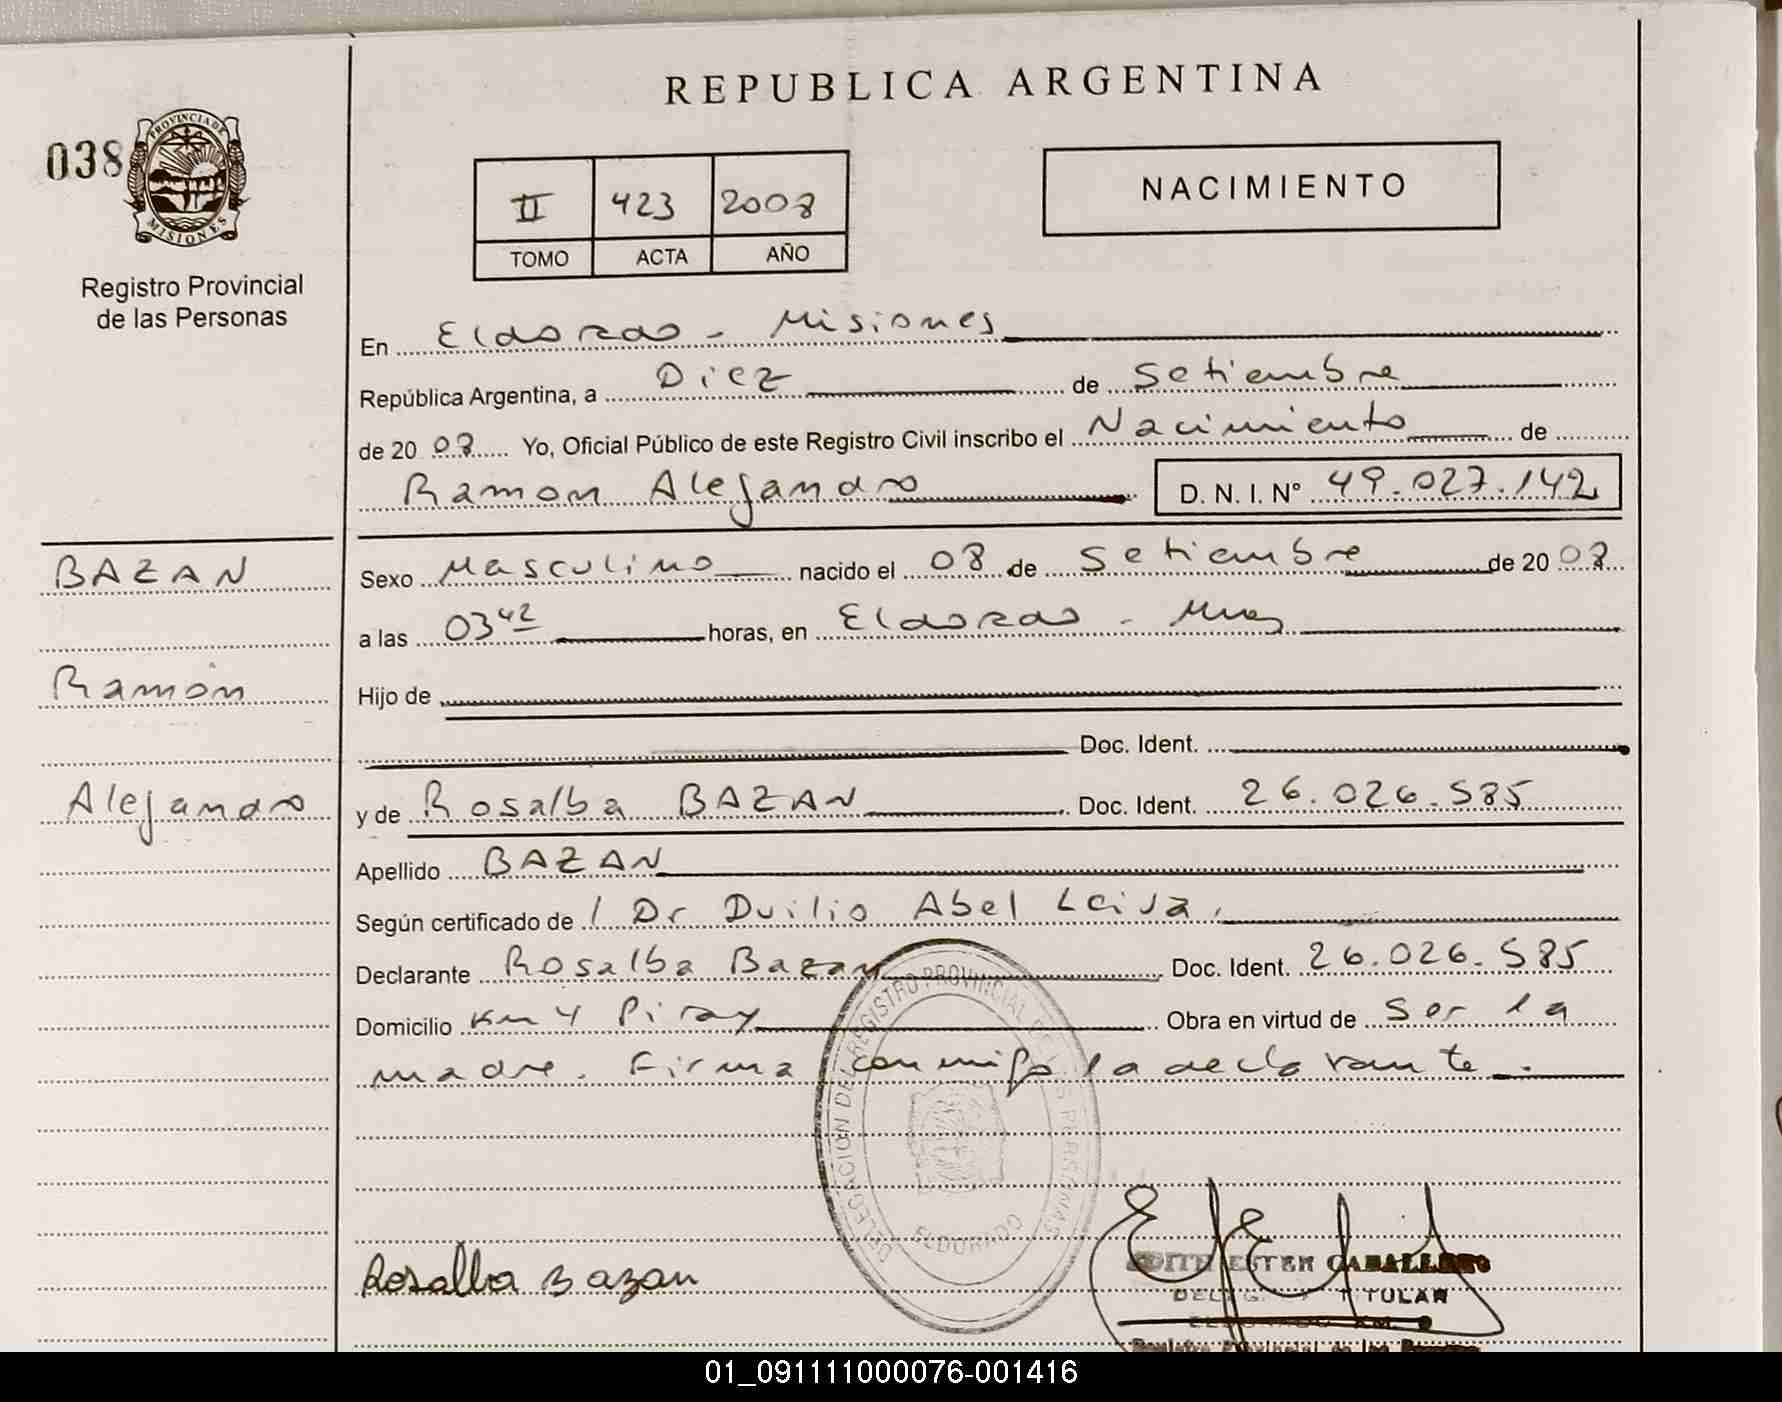 REPUBLICA ARGENTINA
038
PROVINCIA DE
MISIONES
Registro Provincial
de las Personas
II 423 2008
TOMO ACTA AÑO
NACIMIENTO
En Eldorado - Misiones
República Argentina, a Diez de Setiembre
de 2008 Yo, Oficial Público de este Registro Civil inscribo el Nacimiento de
Ramon Alejandro D. N. I. Nº 49.027.142
BAZAN
Ramón
Alejandro
Sexo Masculino nacido el 08 de Setiembre de 2008
a las 03 42 horas, en Eldorado - Mnes
Hijo de
Doc. Ident.
y de Rosalba BAZAN Doc. Ident. 26.026.585
Apellido BAZAN
Según certificado de / Dr Duilio Abel Leiva.
Declarante Rosalba Bazan Doc. Ident. 26.026.585
Domicilio Km 4 Piray Obra en virtud de Ser la
madre. Firma conmigo la declarante.
DELEGACIÓN DEL REGISTRO PROVINCIAL DE LAS PERSONAS
ELDORADO
Rosalba Bazan
EDITH ESTER CABALLERO
TITULAR
Registro Provincial de las Personas
01_091111000076-001416